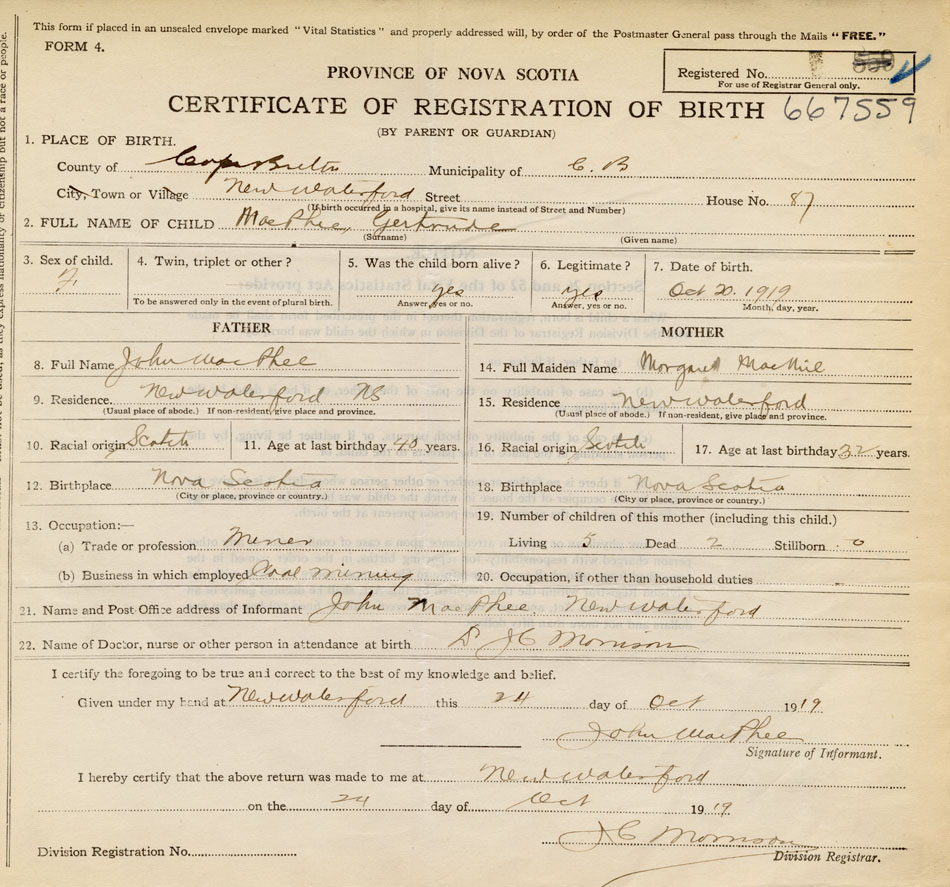 This form if placed in an unsealed envelope marked "Vital Statistics" and properly addressed will, by order of the Postmaster General pass through the Mails "FREE."
FORM 4.
PROVINCE OF NOVA SCOTIA
Registered No.
For use of Registrar General only.
CERTIFICATE OF REGISTRATION OF BIRTH 667559
(BY PARENT OR GUARDIAN)
1. PLACE OF BIRTH.
County of Cape Breton Municipality of C. B
City, Town or Village New Waterford Street House No. 87
(If birth occurred in a hospital, give its name instead of Street and Number)
2. FULL NAME OF CHILD MacPhee, Gertrude
(Surname) (Given name)
3. Sex of child. 4. Twin, triplet or other? 5. Was the child born alive? 6. Legitimate? 7. Date of birth.
F. yes yes Oct 20. 1919
To be answered only in the event of plural birth. Answer, yes or no. Answer, yes or no. Month, day, year.
FATHER
8. Full Name John MacPhee
9. Residence. New Waterford NS
(Usual place of abode.) If non-resident, give place and province.
10. Racial origin Scotch 11. Age at last birthday 40 years.
12. Birthplace Nova Scotia
(City or place, province or country.)
13. Occupation:—
(a) Trade or profession Miner
(b) Business in which employed Coal mining
MOTHER
14. Full Maiden Name Margaret MacNeil
15. Residence New Waterford
(Usual place of abode.) If non-resident, give place and province.
16. Racial origin Scotch 17. Age at last birthday 32 years.
18. Birthplace Nova Scotia
(City or place, province or country.)
19. Number of children of this mother (including this child.)
Living 5 Dead 2 Stillborn 0
20. Occupation, if other than household duties –
21. Name and Post-Office address of Informant John MacPhee. New Waterford
22. Name of Doctor, nurse or other person in attendance at birth Dr J C Morrison
I certify the foregoing to be true and correct to the best of my knowledge and belief.
Given under my hand at New Waterford this 24 day of Oct 1919.
John MacPhee
Signature of Informant.
I hereby certify that the above return was made to me at New Waterford
on the 24 day of Oct 1919.
J C Morrison
Division Registration No. Division Registrar.